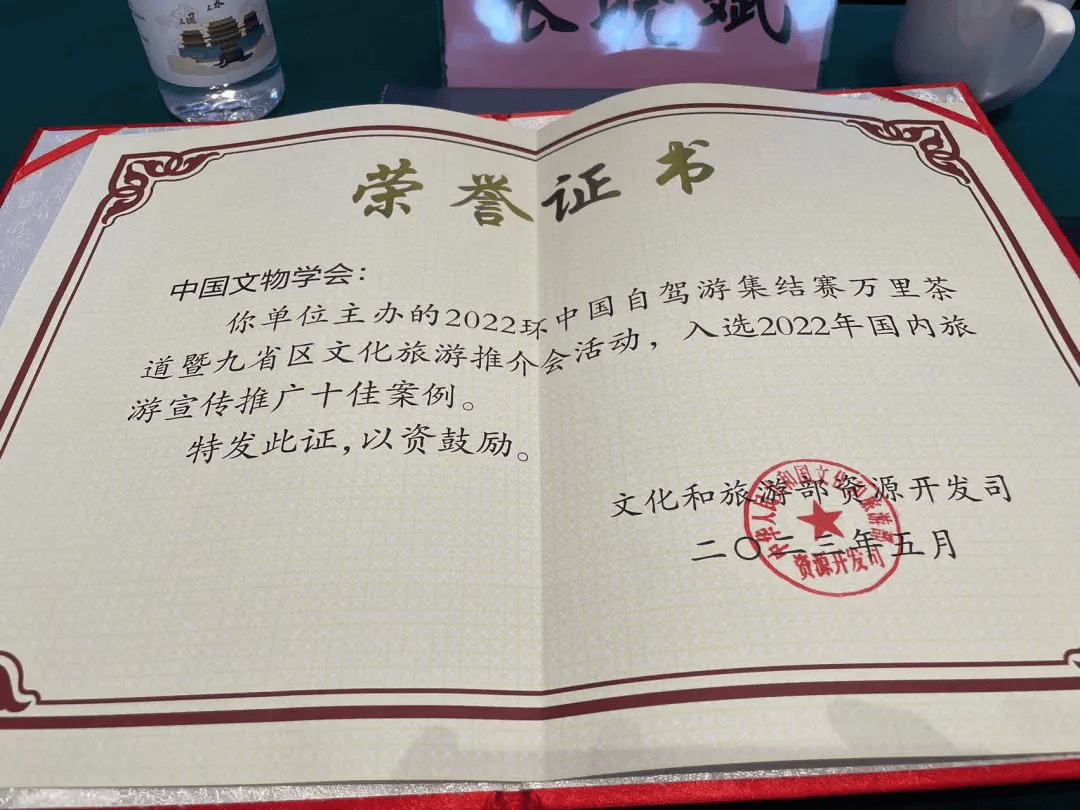 荣誉证书
中国文物学会：
你单位主办的2022环中国自驾游集结赛万里茶
道暨九省区文化旅游推介会活动，入选2022年国内旅
游宣传推广十佳案例。
特发此证，以资鼓励。
文化和旅游部资源开发司
二〇二三年五月
中华人民共和国文化和旅游部
资源开发司